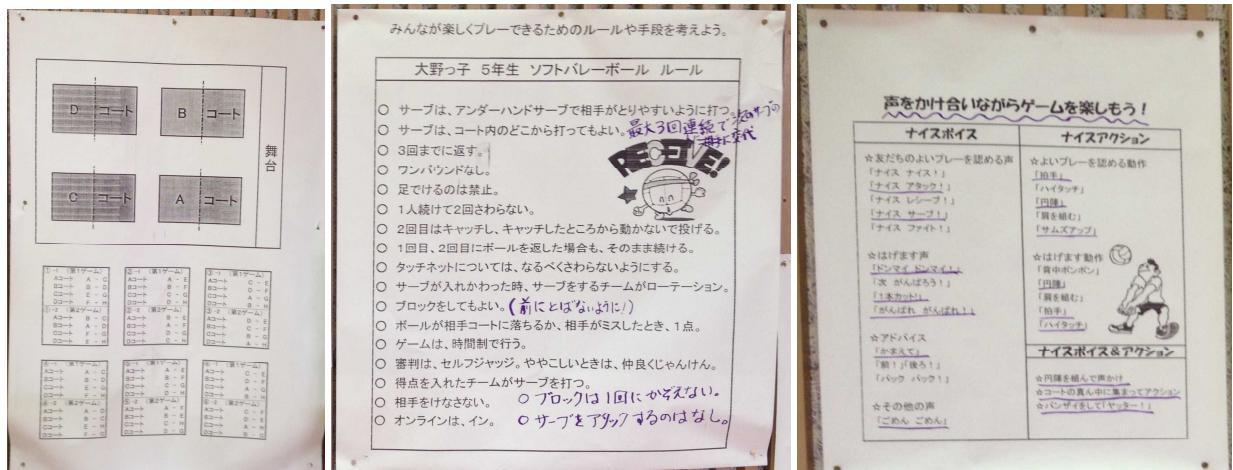 D コート
B コート
舞台
C コート
A コート
①-1 (第1ゲーム)
②-1 (第1ゲーム)
③-1 (第1ゲーム)
①-2 (第2ゲーム)
②-2 (第2ゲーム)
③-2 (第2ゲーム)
みんなが楽しくプレーできるためのルールや手段を考えよう。
大野っ子 5年生 ソフトバレーボール ルール
○ サーブは、アンダーハンドサーブで相手がとりやすいように打つ。
○ サーブは、コート内のどこから打ってもよい。最大3回連続で次のサーブの相手に交代
○ 3回までに返す。
○ ワンバウンドなし。
○ 足でけるのは禁止。
○ 1人続けて2回さわらない。
RECEIVE!
○ 2回目はキャッチし、キャッチしたところから動かないで投げる。
○ 1回目、2回目にボールを返した場合も、そのまま続ける。
○ タッチネットについては、なるべくさわらないようにする。
○ サーブが入れかわった時、サーブをするチームがローテーション。
○ ブロックをしてもよい。(前にとばないように!)
○ ボールが相手コートに落ちるか、相手がミスしたとき、1点。
○ ゲームは、時間制で行う。
○ 審判は、セルフジャッジ。ややこしいときは、仲良くじゃんけん。
○ 得点を入れたチームがサーブを打つ。
○ 相手をけなさない。
○ ブロックは1回にかぞえない。
○ オンラインは、イン。
○ サーブをアタックするのはなし。
声をかけ合いながらゲームを楽しもう!
ナイスボイス
☆友だちのよいプレーを認める声
「ナイス ナイス!」
「ナイス アタック!」
「ナイス レシーブ!」
「ナイス サーブ!」
「ナイス ファイト!」
☆はげます声
「ドンマイ ドンマイ!」
「次 がんばろう!」
「1本カット!」
「がんばれ がんばれ!」
☆アドバイス
「かまえて」
「前!」「後ろ!」
「バック バック!」
☆その他の声
「ごめん ごめん」
ナイスアクション
☆よいプレーを認める動作
「拍手」
「ハイタッチ」
「円陣」
「肩を組む」
「サムズアップ」
☆はげます動作
「背中ポンポン」
「円陣」
「肩を組む」
「拍手」
「ハイタッチ」
ナイスボイス&アクション
☆円陣を組んで声かけ
☆コートの真ん中に集まってアクション
☆バンザイをして「ヤッター!」